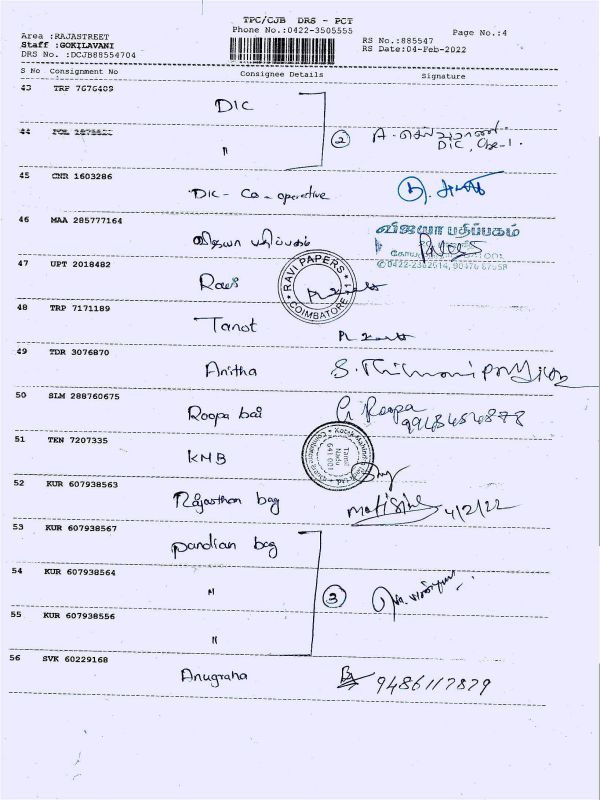 TPC/CJB DRS - PCT
Phone No.:0422-3505555
Page No.:4
Area :RAJASTREET
Staff :GOKILAVANI
DRS No. :DCJB88554704
RS No.:885547
RS Date:04-Feb-2022
S No Consignment No Consignee Details Signature
43 TRP 7676409
DIC
44
"
2
DIC, Cbe-1.
45 CNR 1603286
DIC - Co-operative
46 MAA 285777164
விஜயா பதிப்பகம்
விஜயா பதிப்பகம்
47 UPT 2018482
RAVI PAPERS
COIMBATORE
48 TRP 7171189
Tanot
49 TDR 3076870
Anitha
50 SLM 288760675
Roopa bai
Roopa
51 TEN 7207335
KMB
Tamil
Nadu
641 001
52 KUR 607938563
Rajasthan bag
4/2/22
53 KUR 607938567
pandian bag
54 KUR 607938564
"
3
55 KUR 607938556
"
56 SVK 60229168
Anugraha
9486117879